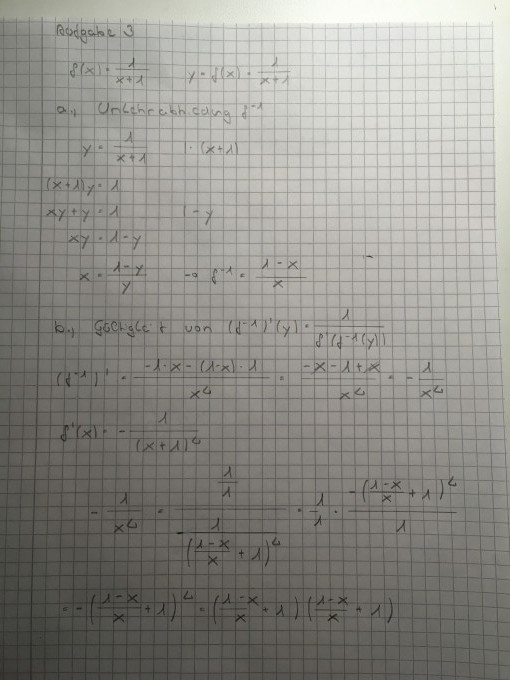 Aufgabe 3
f(x) = 1/(x+1)   y = f(x) = 1/(x+1)
a., Umkehrabbildung f⁻¹
y = 1/(x+1)   | · (x+1)
(x+1)y = 1
xy + y = 1   | - y
xy = 1 - y
x = (1-y)/y   → f⁻¹ = (1-x)/x
b., Gültigkeit von (f⁻¹)'(y) = 1/(f'(f⁻¹(y)))
(f⁻¹)' = (-1·x - (1-x)·1)/x² = (-x - 1 + x)/x² = - 1/x²
f'(x) = - 1/(x+1)²
- 1/x² = (1/1)/(- 1/((1-x)/x + 1)²) = 1/1 · (-((1-x)/x + 1)²)/1
= -((1-x)/x + 1)² = ((1-x)/x + 1) ((1-x)/x + 1)